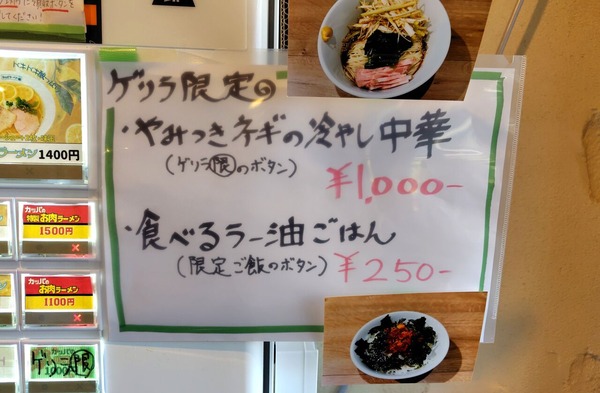 ゲリラ限定の
・やみつきネギの冷やし中華
(ゲリラ限のボタン)
¥1,000-
・食べるラー油ごはん
(限定ご飯のボタン) ¥250-
ラーメン 1400円
カッパの
お肉ラーメン
1500円
カッパの
お肉ラーメン
1100円
ゲリラ限